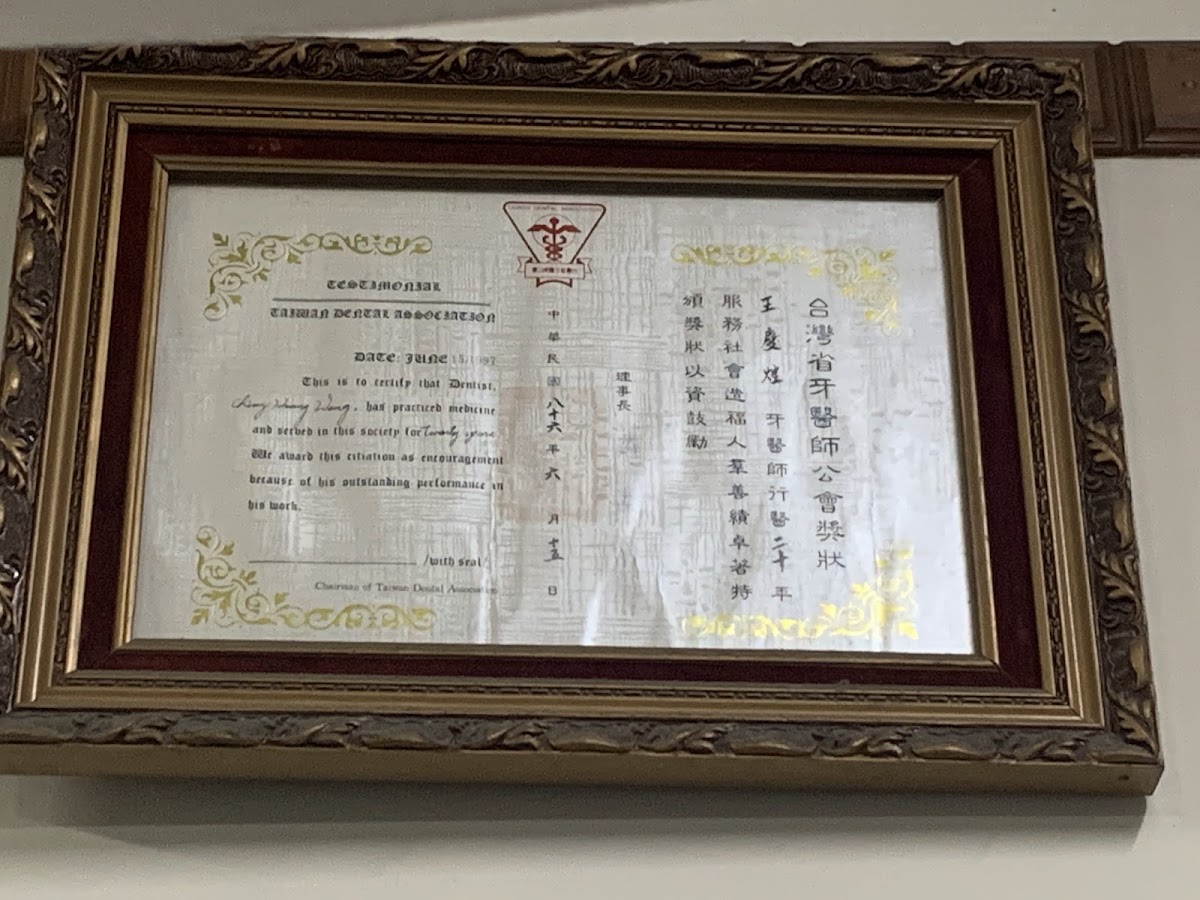 TESTIMONIAL
TAIWAN DENTAL ASSOCIATION
DATE: JUNE 15/1997
This is to certify that Dentist,
Wang, has practiced medicine
and served in this society for twenty years
We award this citiation as encouragement
because of his outstanding performance in
his work.
/with seal/
Chairman of Taiwan Dental Association
台灣省牙醫師公會獎狀
王慶煌牙醫師行醫二十年
服務社會造福人羣善績卓著特
頒獎狀以資鼓勵
理事長
中華民國八十六年六月十五日